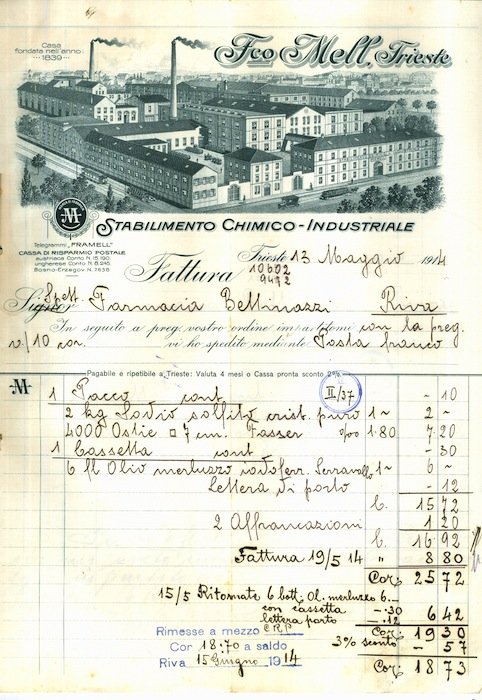 Casa
fondata nell'anno:
1839
Fco Mell, Trieste
M
STABILIMENTO CHIMICO-INDUSTRIALE
Telegrammi „FRAMELL"
CASSA DI RISPARMIO POSTALE
austriaca Conto N. 15.190
ungherese Conto N. 8.245
Bosno-Erzegov. N. 7638
Trieste 13 Maggio 1914
Fattura 10602
9492
Spett. Farmacia Bettinazzi Riva
In seguito a preg. vostro ordine con la preg.
v/10 cor. vi ho spedito mediante Posta franco
Pagabile e ripetibile a Trieste: Valuta 4 mesi o Cassa pronta sconto 2%.
M
II/37
1 Pacco cont – 10
2 kg Sodio solfito crist. puro 1~ 2 ~
4000 Ostie □ 7 cm. Fasser %oo 1.80 7 20
1 Cassetta cont – 30
6 fl Olio merluzzo iodoferr. Serravallo 1~ 6 ~
Lettera di porto – 12
15 72
2 Affrancazioni 1 20
16 92
Fattura 19/5 14 „ 8 80
Cor: 25 72
15/5 Ritornate 6 bott. Ol. merluzzo 6.–
con cassetta –.30
lettera porto –.12 6 42
Cor: 19 30
3% sconto – 57
Cor: 18 73
Rimesse a mezzo C.R.P.
Cor 18.70 a saldo
Riva 15 Giugno 1914